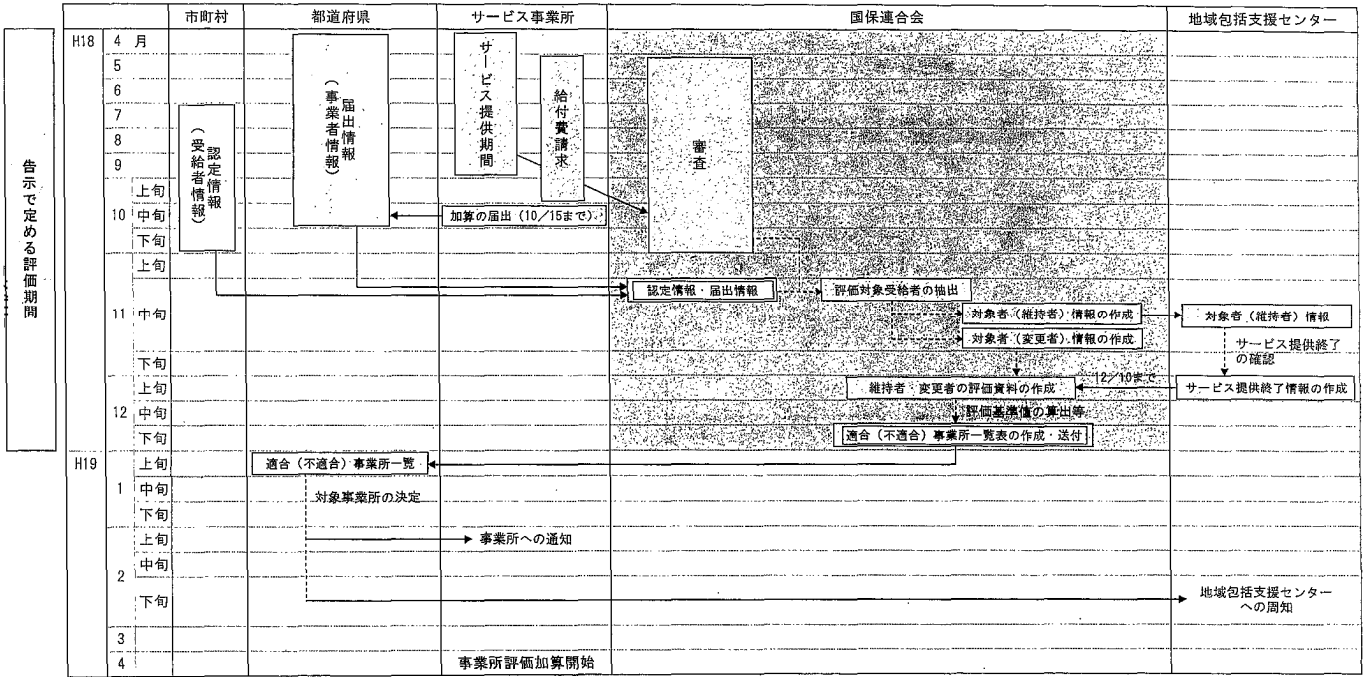 市町村
都道府県
サービス事業所
国保連合会
地域包括支援センター
告示で定める評価期間
H18
4 月
5
6
7
8
9
10
上旬
中旬
下旬
11
上旬
中旬
下旬
12
上旬
中旬
下旬
H19
1
上旬
中旬
下旬
2
上旬
中旬
下旬
3
4
認定情報
(受給者情報)
届出情報
(事業者情報)
サービス提供期間
給付費請求
審査
加算の届出 (10/15まで)
認定情報・届出情報
評価対象受給者の抽出
対象者(維持者)情報の作成
対象者(変更者)情報の作成
対象者(維持者)情報
サービス提供終了
の確認
サービス提供終了情報の作成
12/10まで
維持者・変更者の評価資料の作成
評価基準値の算出等
適合(不適合)事業所一覧表の作成・送付
適合(不適合)事業所一覧
対象事業所の決定
事業所への通知
地域包括支援センター
への周知
事業所評価加算開始